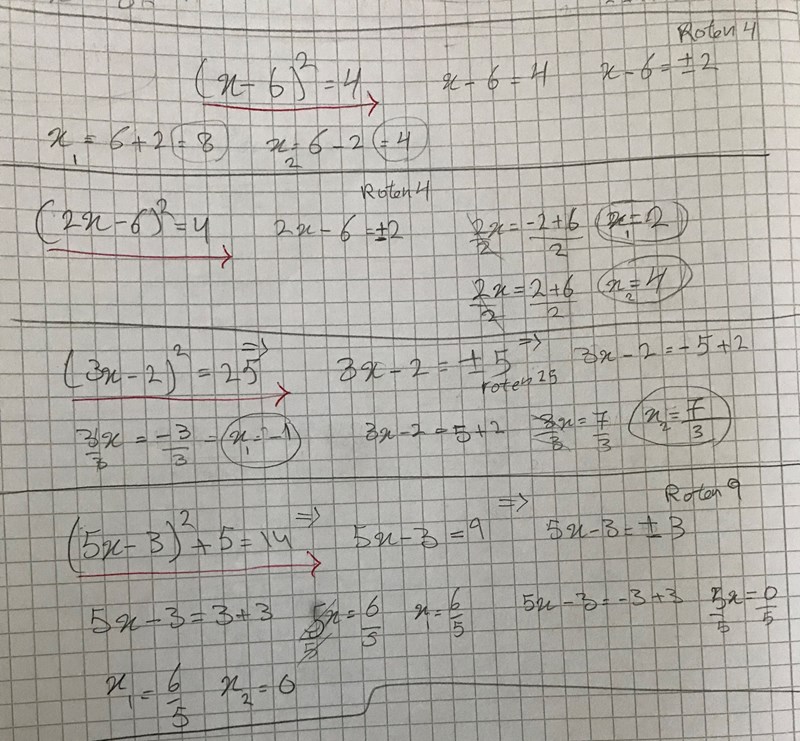 Roten 4
(x-6)² = 4 x-6 = 4 x-6 = ±2
x₁ = 6+2 = 8 x₂ = 6-2 = 4
Roten 4
(2x-6)² = 4 2x-6 = ±2 2x/2 = -2+6/2 x₁ = 2
2x/2 = 2+6/2 x₂ = 4
(3x-2)² = 25 => 3x-2 = ±5 => 3x-2 = -5+2
roten 25
3x/3 = -3/3 = x₁ = -1 3x-2 = 5+2 3x/3 = 7/3 x₂ = 7/3
Roten 9
(5x-3)² + 5 = 14 => 5x-3 = 9 => 5x-3 = ±3
5x-3 = 3+3 5x/5 = 6/5 x₁ = 6/5 5x-3 = -3+3 5x/5 = 0/5
x₁ = 6/5 x₂ = 0